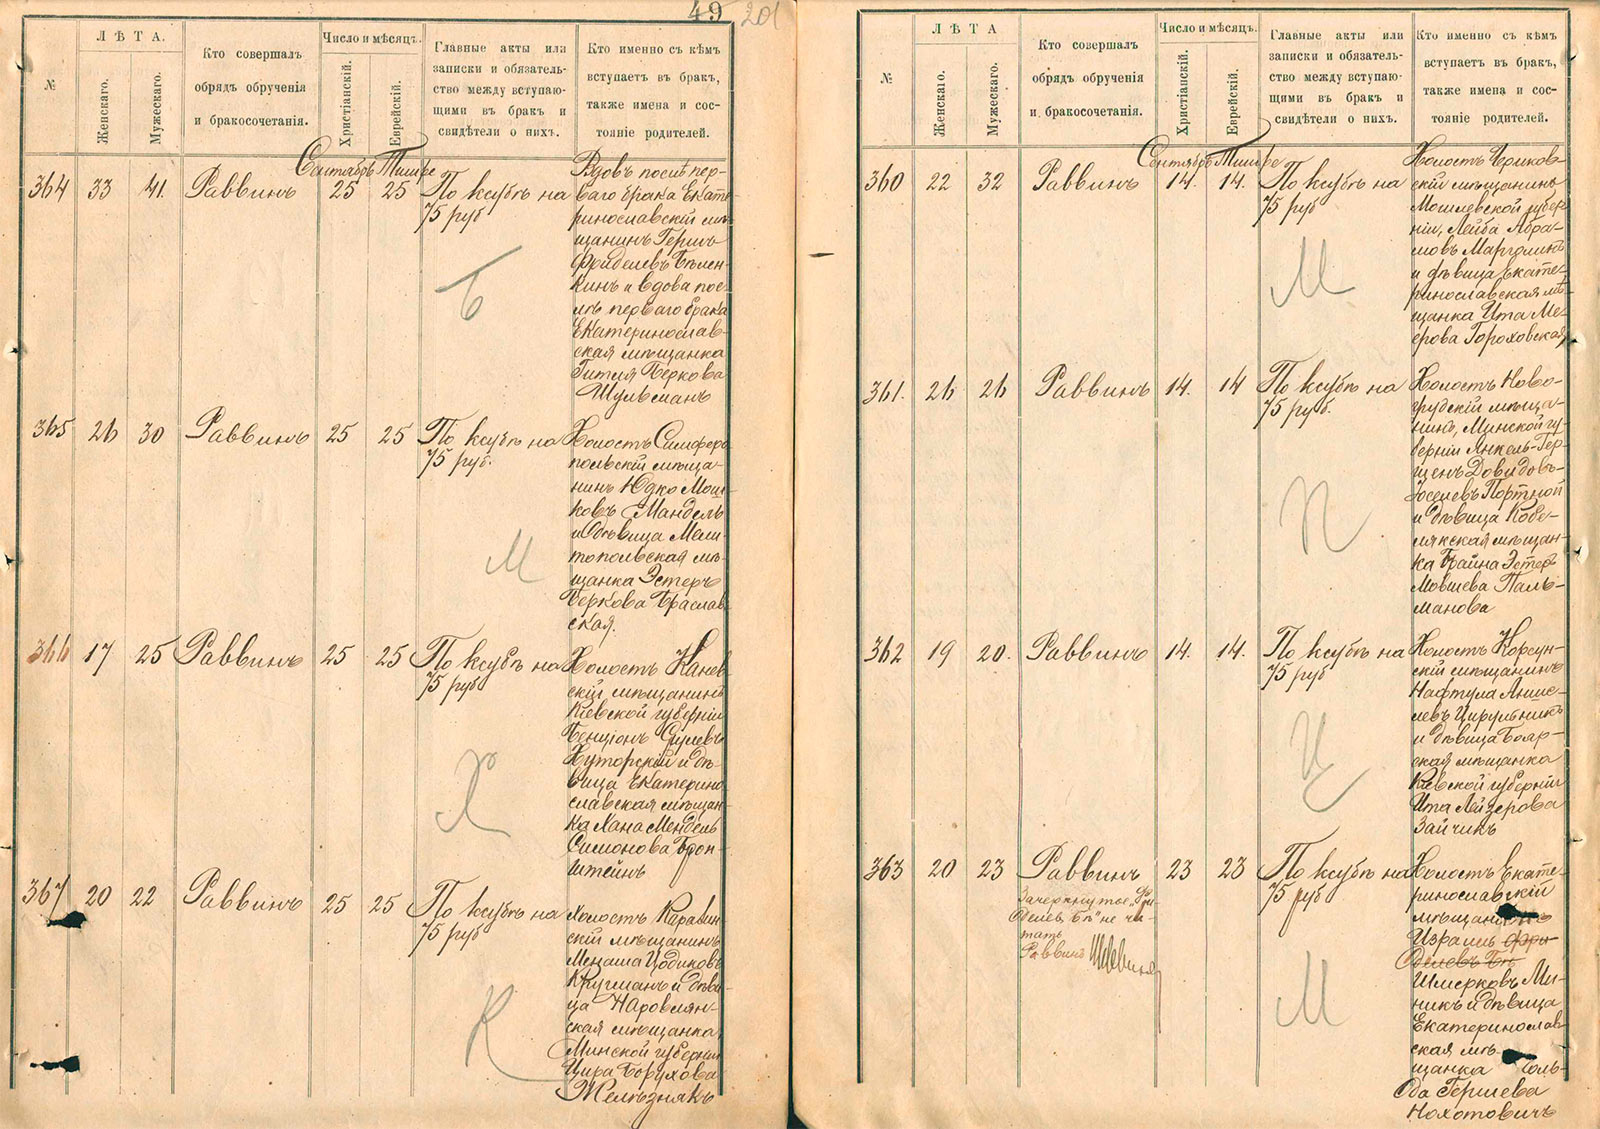 49 201
№
ЛѢТА.
Женскаго.
Мужескаго.
Кто совершалъ
обрядъ обрученія
и бракосочетанія.
Число и мѣсяцъ.
Христіанскій.
Еврейскій.
Главные акты или
записки и обязатель-
ство между вступаю-
щими въ бракъ и
свидѣтели о нихъ.
Кто именно съ кѣмъ
вступаетъ въ бракъ,
также имена и сос-
тояніе родителей.
Сентябрь Тишре
364 33 41. Раввинъ 25 25 По ксубѣ на
75 руб
Вдовъ послѣ пер-
ваго брака Екате
ринославскій мѣ
щанинъ Гершъ
Фриделевъ Бѣлен-
кинъ и вдова пос-
лѣ перваго брака
Екатеринослав-
ская мѣщанка
Гитля Беркова
Шульманъ
Б
365 26 30 Раввинъ 25 25 По ксубѣ на
75 руб.
Холостъ Симферо
польскій мѣща-
нинъ Юдко Мош-
ковъ Мандель
и дѣвица Мели
топольская мѣ-
щанка Эстеръ
Беркова Браслав
ская.
М
366 17 25 Раввинъ 25 25 По ксубѣ на
75 руб
Холостъ Канев
скій мѣщанинъ
Кіевской губерніи
Бенціонъ Срулевъ
Хуторскій и дѣ-
вица Екатерино
славская мѣщан-
ка Хана Мендель
Симонова Брон-
штейнъ
Х
367 20 22 Раввинъ 25 25 По ксубѣ на
75 руб
Холостъ Каравин
скій мѣщанинъ
Менаша Цодиковъ
Кругманъ и дѣви
ца Наровлян-
ская мѣщанка,
Минской губерніи
Цира Борухова
Желѣзнякъ
К
№
ЛѢТА
Женскаго.
Мужескаго.
Кто совершалъ
обрядъ обрученія
и бракосочетанія.
Число и мѣсяцъ.
Христіанскій.
Еврейскій.
Главные акты или
записки и обязатель-
ство между вступаю-
щими въ бракъ и
свидѣтели о нихъ.
Кто именно съ кѣмъ
вступаетъ въ бракъ,
также имена и сос-
тояніе родителей.
Сентябрь Тишре
360 22 32 Раввинъ 14. 14. По ксубѣ на
75 руб
Холостъ Чриков-
скій мѣщанинъ
Могилевской губер
ніи, Лейба Абра-
мовъ Марголинъ
и дѣвица Екате-
ринославская мѣ-
щанка Ита Ме-
ерова Гороховская
М
361. 26 26 Раввинъ 14. 14 По ксубѣ на
75 руб.
Холостъ Ново-
грудскій мѣща-
нинъ, Минской гу-
берніи Янкель-Гер-
шенъ Довидовъ-
Іоселевъ Портной
и дѣвица Кобе-
лякская мѣщан-
ка Брайна Эстеръ
Мовшева Паль-
манова
П
362 19 20. Раввинъ 14. 14. По ксубѣ на
75 руб
Холостъ Корсун-
скій мѣщанинъ
Нафтула Аншe-
левъ Цирульникъ
и дѣвица Бояр-
ская мѣщанка
Кіевской губерніи
Ита Лейзерова
Зайчикъ
Ц
363 20 23 Раввинъ 23 23 По ксубѣ на
75 руб
Зачеркнутое „Фри
делевъ Бѣ" не чи-
тать
Раввинъ
Холостъ Екате-
ринославскій
мѣщанинъ
Израиль Фри-
делевъ Бѣ
Шмерковъ Ми-
никъ и дѣвица
Екатеринослав-
ская мѣ-
щанка Голь-
да Гершева
Нохотовичъ
М